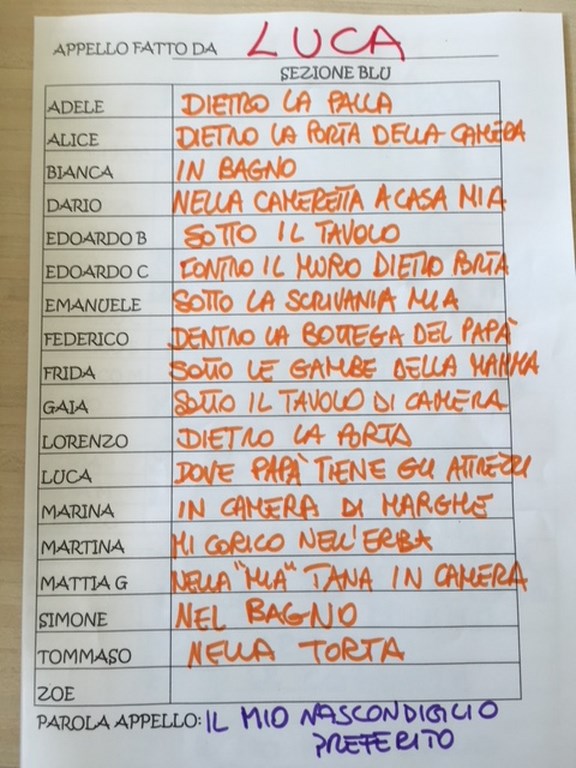 APPELLO FATTO DA LUCA
SEZIONE BLU
ADELE DIETRO LA PALLA
ALICE DIETRO LA PORTA DELLA CAMERA
BIANCA IN BAGNO
DARIO NELLA CAMERETTA A CASA MIA
EDOARDO B SOTTO IL TAVOLO
EDOARDO C CONTRO IL MURO DIETRO PORTA
EMANUELE SOTTO LA SCRIVANIA MIA
FEDERICO DENTRO LA BOTTEGA DEL PAPÀ
FRIDA SOTTO LE GAMBE DELLA MAMMA
GAIA SOTTO IL TAVOLO DI CAMERA
LORENZO DIETRO LA PORTA
LUCA DOVE PAPÀ TIENE GLI ATTREZZI
MARINA IN CAMERA DI MARGHE
MARTINA MI CORICO NELL'ERBA
MATTIA G NELLA "MIA" TANA IN CAMERA
SIMONE NEL BAGNO
TOMMASO NELLA TORTA
ZOE
PAROLA APPELLO: IL MIO NASCONDIGLIO
PREFERITO